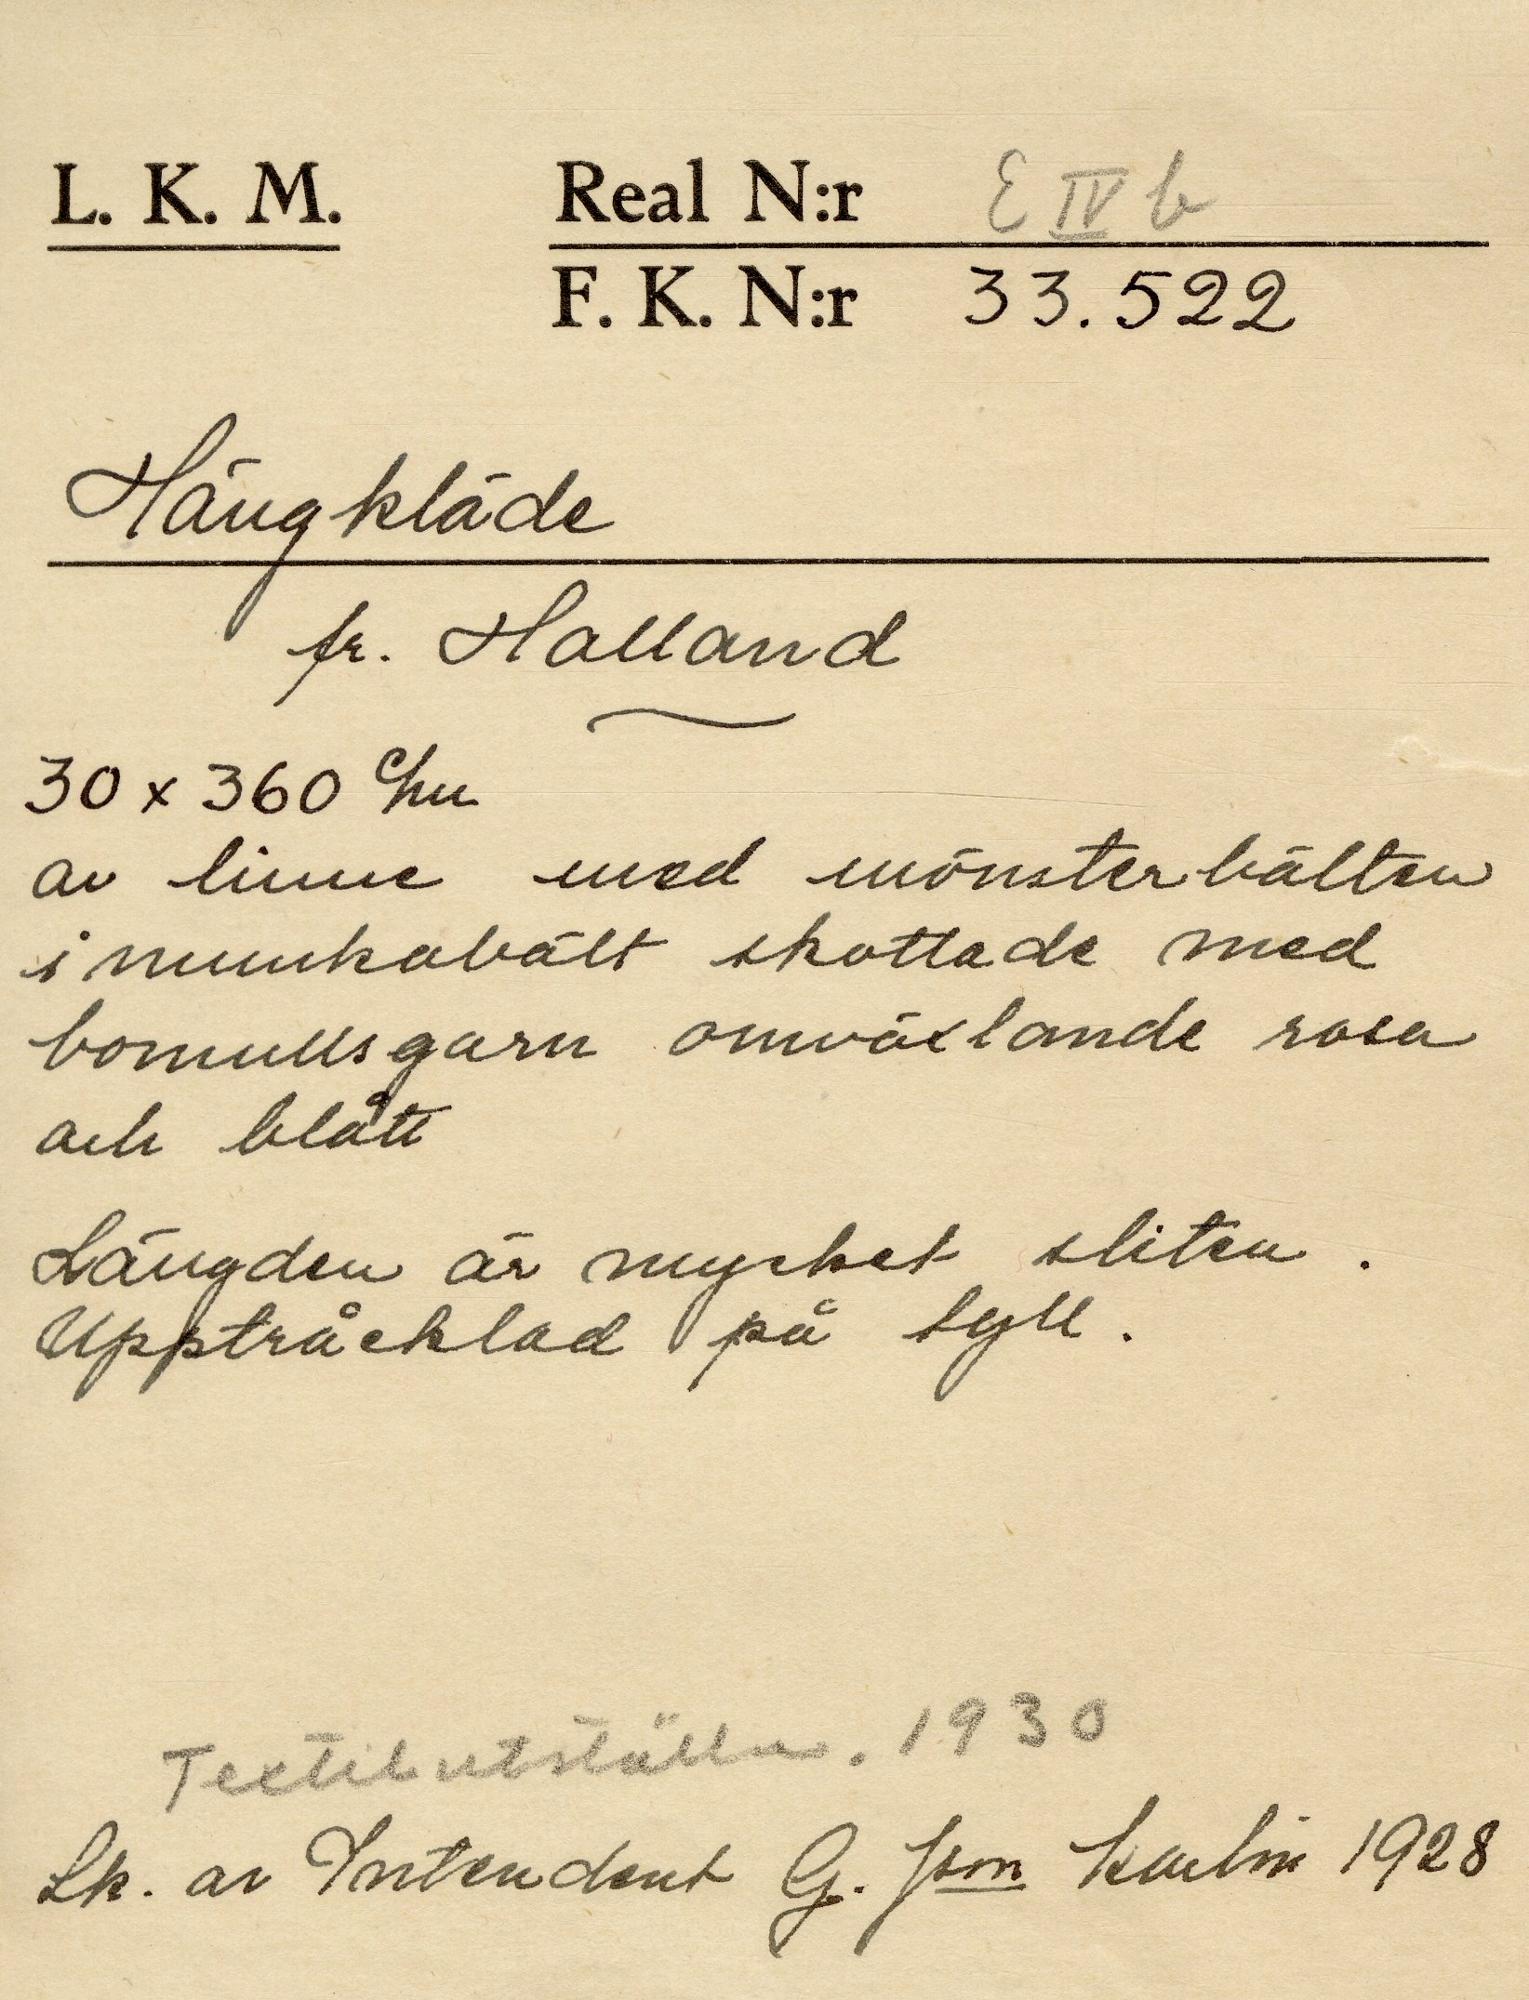 L. K. M. Real N:r E IV b
F. K. N:r 33.522
Hängkläde
fr. Halland
30 x 360 c/m
av linne med mönsterbälten
i munkabält skottade med
bomullsgarn omväxlande rosa
och blått
Längden är mycket sliten.
Uppträcklad på tyll.
Textilutställn. 1930
Sk. av Intendent G. Json Karlin 1928